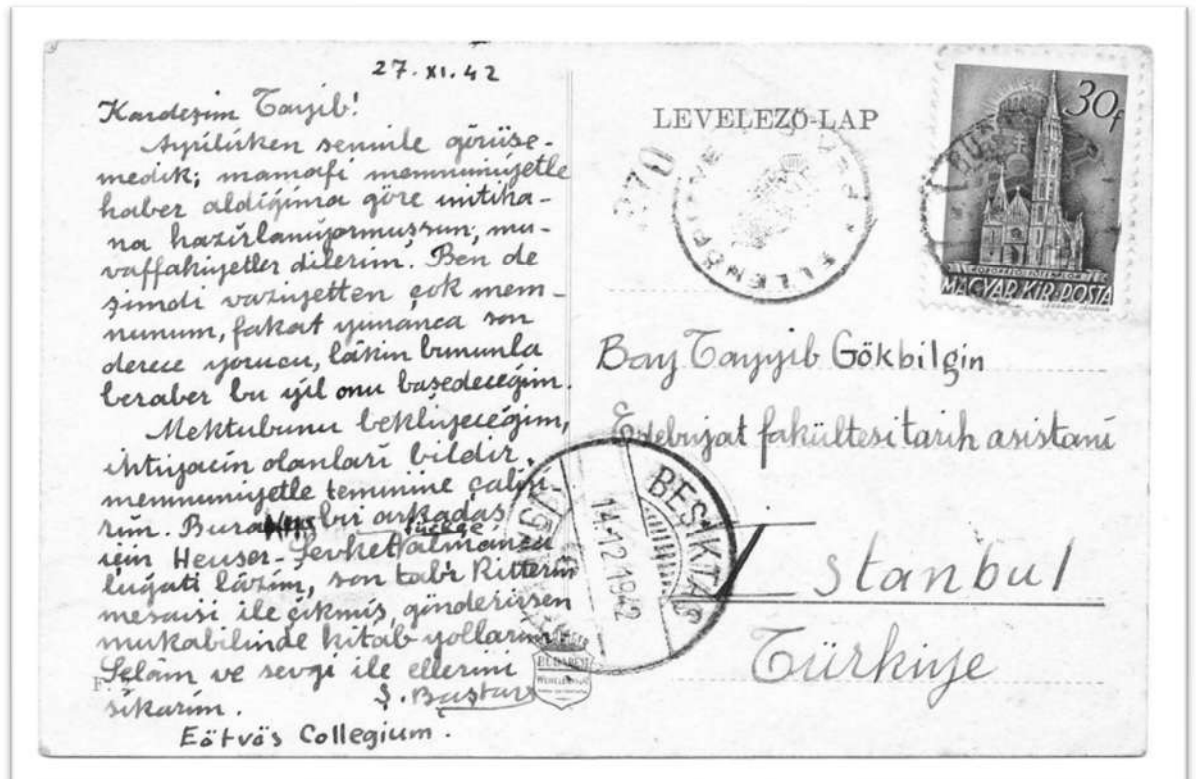 27. XI. 42
Kardeşim Tayyib!
Ayrılırken seninle görüşe-
medik; mamafi memnuniyetle
haber aldığıma göre imtiha-
na hazırlanıyormuşsun, mu-
vaffakiyetler dilerim. Ben de
şimdi vaziyetten çok mem-
nunum, fakat yunanca son
derece yorucu, lâkin bununla
beraber bu yıl onu başedeceğim.
Mektubunu bekliyeceğim,
ihtiyacın olanları bildir,
memnuniyetle teminine çalışı-
rım. Bura bir arkadaş
türkçe
için Heuser-Şevket almanca
lugati lâzım, son tab'ı Ritterin
mesaisi ile çıkmış, gönderirsen
mukabilinde kitab yollarım
Selâm ve sevgi ile ellerini
sıkarım.
Ş. Baştav
Eötvös Collegium.
LEVELEZŐ-LAP
370
30f
MAGYAR KIR. POSTA
Bay Tayyib Gökbilgin
Edebiyat fakültesi tarih asistanı
İstanbul
Türkiye
BEŞİKTAŞ
14.12.1942
BUDAPEST